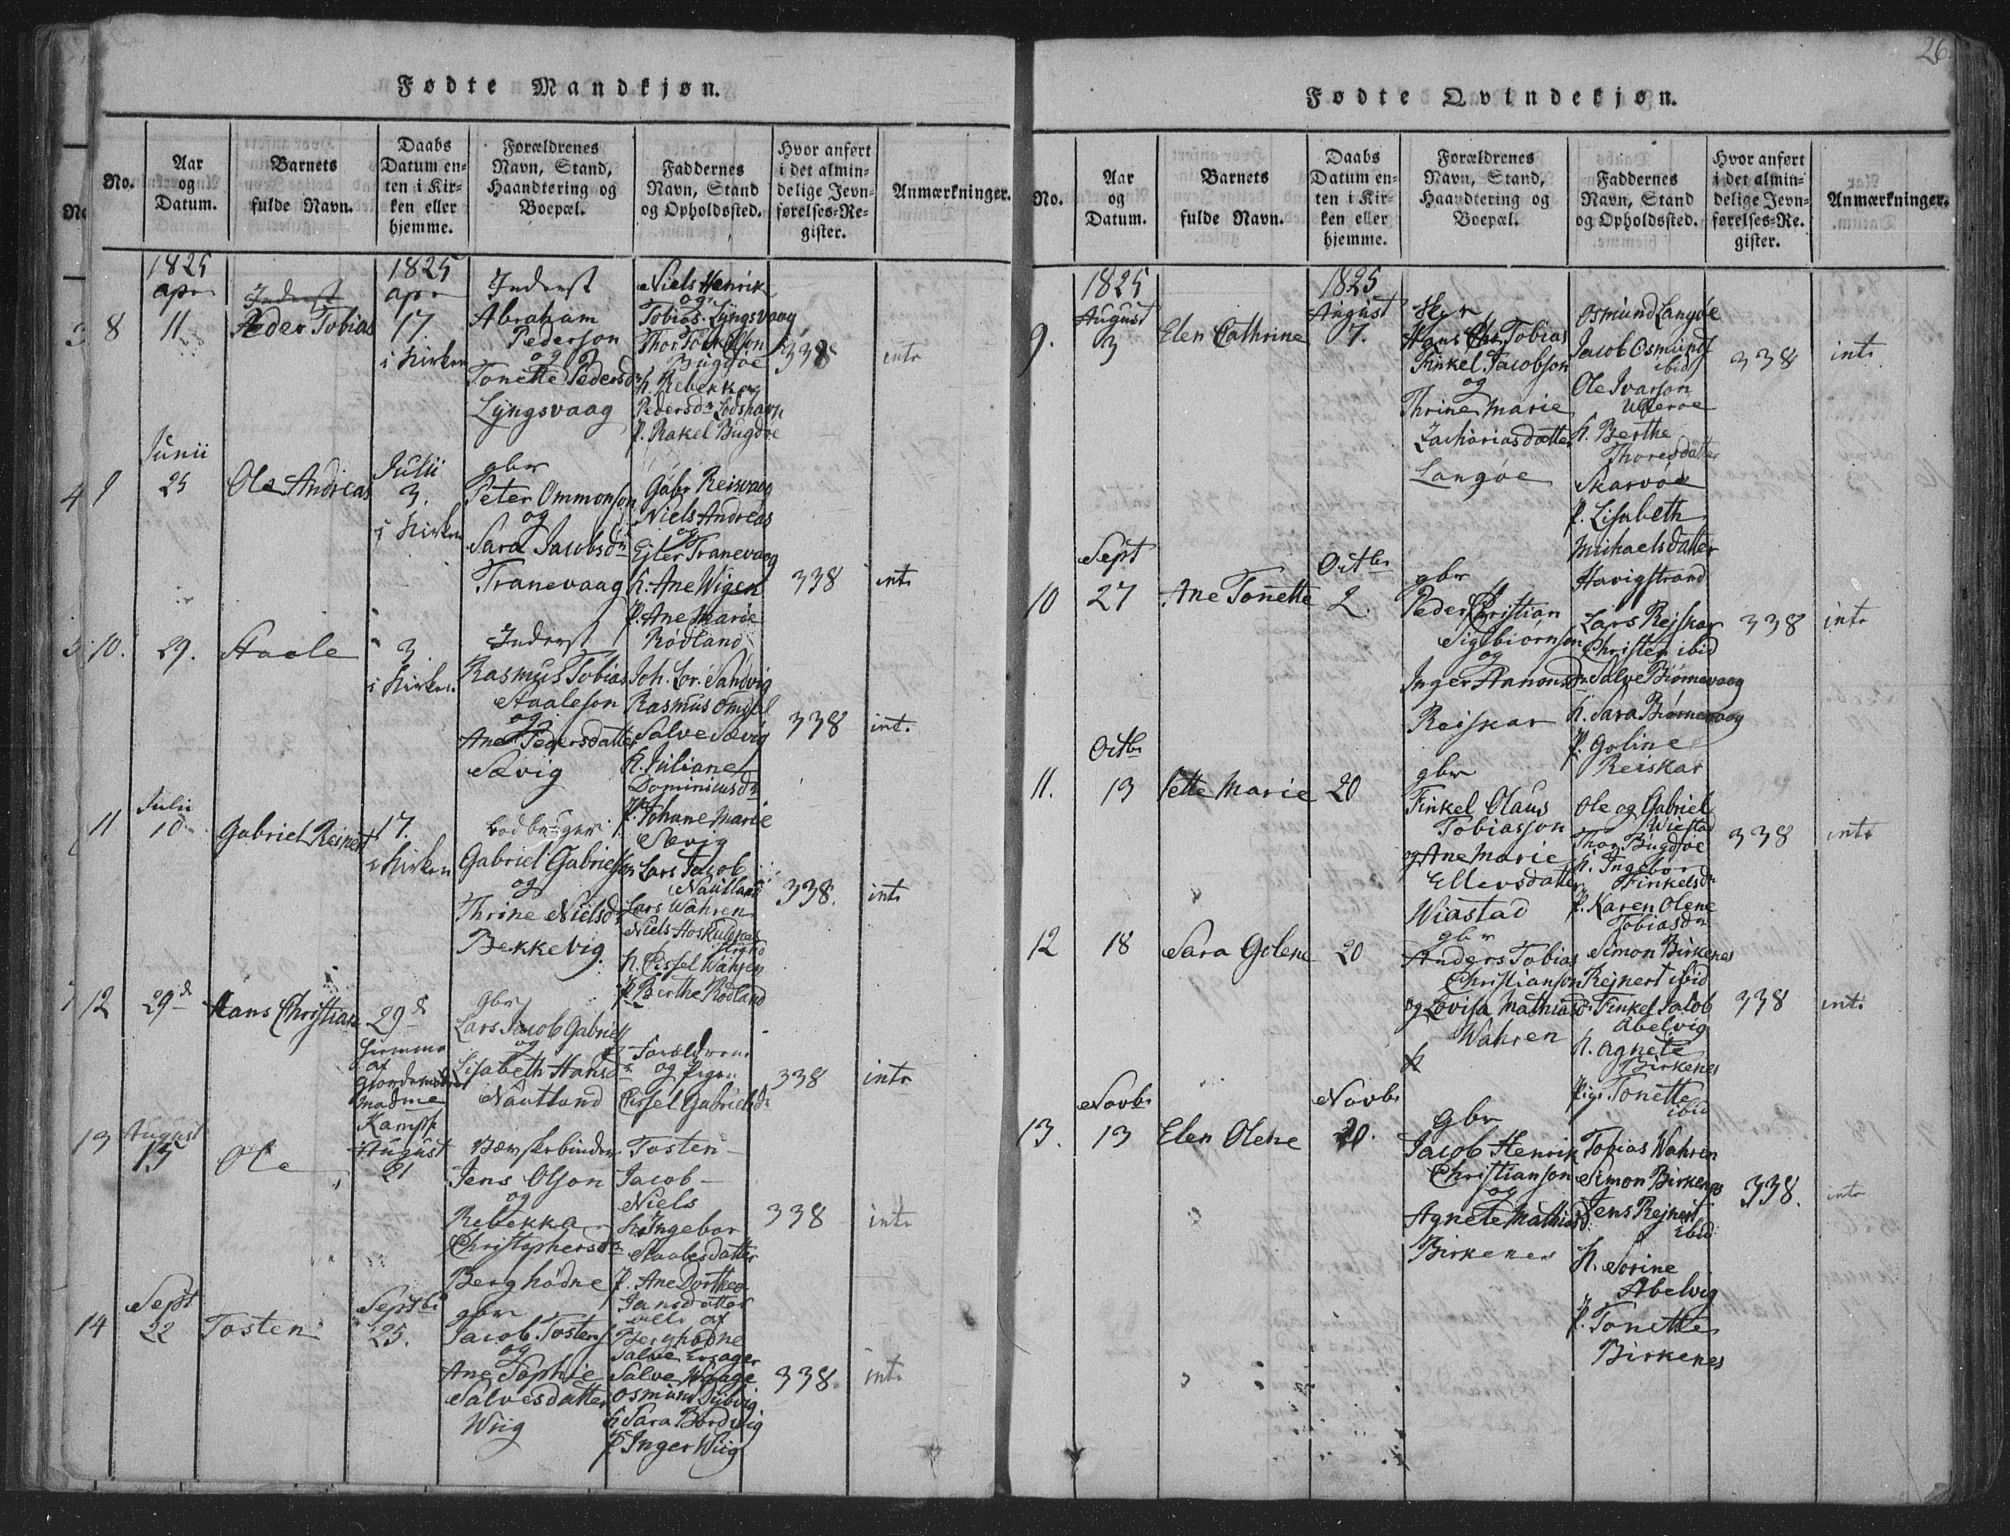 Fødte Mandkjøn.
No.
Aar
og
Datum.
Barnets
fulde Navn.
Daabs
Datum en-
ten i Kir-
ken eller
hjemme.
Forældrenes
Navn, Stand,
Haandtering og
Boepæl.
Faddernes
Navn, Stand
og Opholdssted.
Hvor anført
i det almin-
delige Jevn-
førelses-Re-
gister.
Anmærkninger.
8
1825
apr
11
Inderst
Peder Tobias
1825
apr
17
i Kirken
Inderst
Abraham
Pederson
og
Tonette Pedersdr
Lyngsvaag
Niels Henrik
og
Tobias Lyngsvaag
Thor Torkelson
Bugdøe
K. Rebekka
Pedersdr Lodshavn
P. Rakel Bugdøe
338
intr
9
Junii
25
Ole Andreas
Julii
3.
i Kirken
gbr
Peter Ommonson
og
Sara Jacobsdr
Tranevaag
Gabr Reisvaag
Niels Andreas
og
Ejler Tranevaag
K. Ane Wigen
P. Ane Marie
Rødland
338
intr
10.
29.
Staale
3
i Kirken
Inderst
Rasmus Tobias
Staaleson
og
Ane Pedersdatter
Sævig
Joh. Lor. Sandvig
Rasmus Omdal
Salve Sævig
K. Juliane
Dominicusdr
P. Johane Marie
Sævig
338
int.
11
Julii
10
Gabriel Reinert
17.
i Kirken
Gabriel Gabrielson
og
Thrine Nielsdr
Bekkevig.
Lars Jacob
Nautland
Lars Wahren
Niels Hoskuldnes
K. Cissel Wahren
P. Berthe Rødland
338.
intr
12
29d
Hans Christian
29d
hjemme
af
Giordemoder
Madme
Kamp
gbr
Lars Jacob Gabriels
og
Lisabeth Hansdr
Nautland
Forældrene
og Pigen
Cissel Gabrielsdr
338
intr
13
August
15
Ole
August
21
Børstebinder
Jens Olson
og
Rebekka
Christophersdr
Berghødne
Tosten
Jacob
Niels
K. Ingebor
Staalesdatter
P. Ane Dorthea
Jansdatter
alle af
Berghødne
338
intr
14
Sept
22
Tosten
Septbr
25.
gbr
Jacob Tostens
og
Ane Sophie
Salvesdatter
Wiig
Salve Waage
Osmund Dybvig
K. Sara Bordvig
P. Inger Wiig
338.
intr
26
Fødte Qvindekjøn.
No.
Aar
og
Datum.
Barnets
fulde Navn.
Daabs
Datum en-
ten i Kir-
ken eller
hjemme.
Forældrenes
Navn, Stand,
Haandtering og
Boepæl.
Faddernes
Navn, Stand
og Opholdssted.
Hvor anført
i det almin-
delige Jevn-
førelses-Re-
gister.
Anmærkninger.
9.
1825
August
3
Elen Cathrine
1825
August
7.
Hans Chr. Tobias
Finkel Jacobson
og
Thrine Marie
Zachariasdatter
Langøe
Osmund Langøe
Jacob Osmunds
ibid
Ole Ivarson
Udøerøe
K. Berthe
Thoresdatter
Skarvøe
P. Lisabeth
Michaelsdatter
Havigstrand
338
intr
10
Sept
27
Ane Tonette
Octbr
2.
gbr
Peder Christian
Sigbiørnson
og
Inger Aanonsdr
Reiskar
Lars Rejskar
Christen ibid
Salve Biørnevaag
K. Sara Biørnevaag
P. Goline
Reiskar
338
intr
11.
Octbr
13
Sette Marie
20
gbr
Finkel Olaus
Tobiasson
og Ane Marie
Ellevsdatter
Wiastad
Ole og Gabriel
Wiestad
Thor Bugdøe
K. Ingebor
Finkelsdr
P. Karen Olene
Tobiasdr
338
intr
12
18
Sara Golene
20
gbr
Anders Tobias
Christianson
og Lovisa Mathiasdr
Wahren
Simon Birkenes
Rejnert ibid
Finkel Jacob
Abelvig
K. Agnete
Birkenes
Pige Tonette
ibid
338
intr
13.
Novbr
13
Elen Olene
Novbr
20.
Gbr
Jacob Henrik
Christianson
og
Agnete Mathiasd
Birkenes
Tobias Wahren
Simon Birkenes
Jens Rejnert
ibid
K. Sorine
Abelvig
P. Tonette
Birkenes
338.
intr